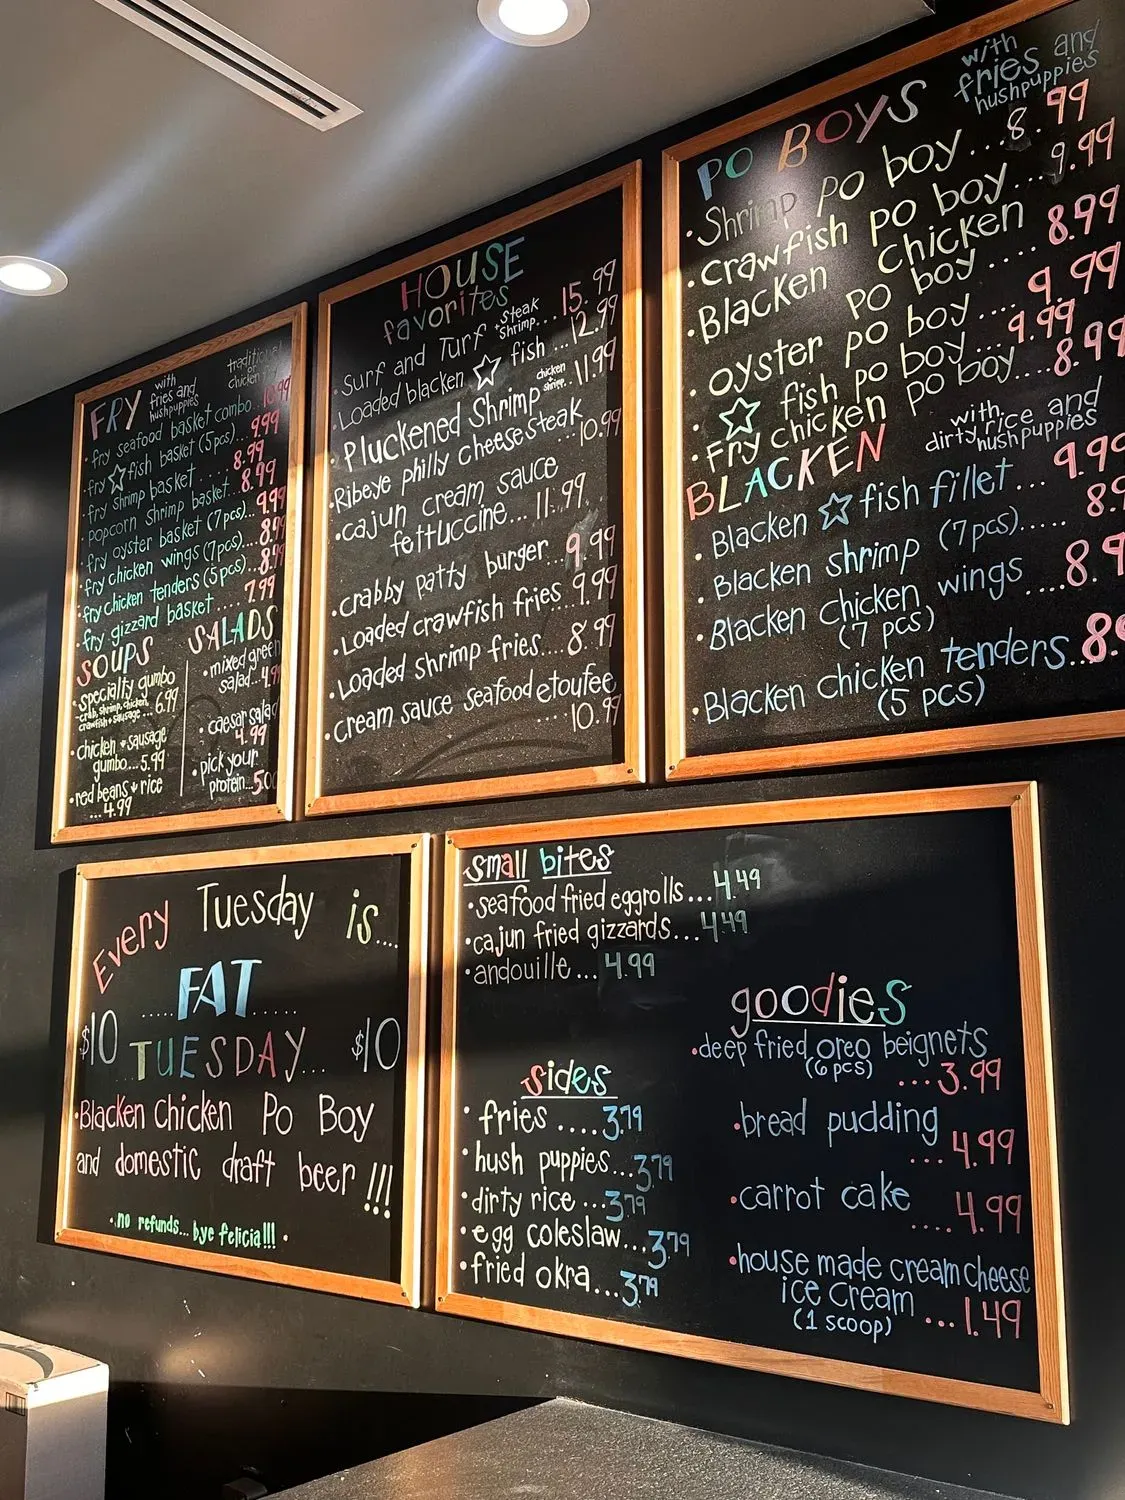 FRY
with
fries and
hushpuppies
traditional
or
chicken
fry seafood basket combo..10.99
fry ☆ fish basket (5pcs)...9.99
fry shrimp basket .... 8.99
popcorn shrimp basket..8.99
fry oyster basket (7pcs)...9.99
fry chicken wings (7pcs)...8.99
fry chicken tenders (5pcs)..8.99
fry gizzard basket .... 7.99
SOUPS
• specialty gumbo
crab, shrimp, chicken,
crawfish + sausage ... 6.99
• chicken + sausage
gumbo...5.99
• red beans + rice
...4.99
SALADS
• mixed green
salad...4.99
• caesar salad
4.99
• pick your
protein...5.00
HOUSE
favorites
• Surf and Turf steak shrimp... 15.99
• Loaded blacken ☆ fish ...12.99
• Pluckened Shrimp chicken shrimp..11.99
• Ribeye philly cheesesteak
...10.99
• cajun cream sauce
fettuccine... 11.99
• crabby patty burger...9.99
• Loaded crawfish fries 9.99
• Loaded shrimp fries... 8.99
• cream sauce seafood etoufee
.... 10.99
PO BOYS
with
fries and
hushpuppies
• Shrimp po boy...8.99
• Crawfish po boy...9.99
• Blacken chicken
po boy .... 8.99
• oyster po boy ... 9.99
• ☆ fish po boy...9.99
• Fry chicken po boy....8.99
BLACKEN
with
dirty rice and
hushpuppies
• Blacken ☆ fish fillet... 9.99
• Blacken shrimp (7pcs)..... 8.9
• Blacken chicken wings
(7 pcs) ....8.9
• Blacken chicken tenders...8
(5 pcs)
Every Tuesday is....
.....FAT.....
$10 ..TUESDAY... $10
• Blacken Chicken Po Boy
and domestic draft beer !!!
• no refunds... bye felicia!!! •
small bites
• seafood fried eggrolls...4.49
• cajun fried gizzards...4.49
• andouille...4.99
sides
• fries ....3.79
• hush puppies...3.79
• dirty rice ...3.79
• egg coleslaw...3.79
• fried okra...3.79
goodies
• deep fried oreo beignets
(6 pcs) ...3.99
• bread pudding
.... 4.99
• carrot cake
.... 4.99
• house made cream cheese
ice cream
(1 scoop) ...1.49